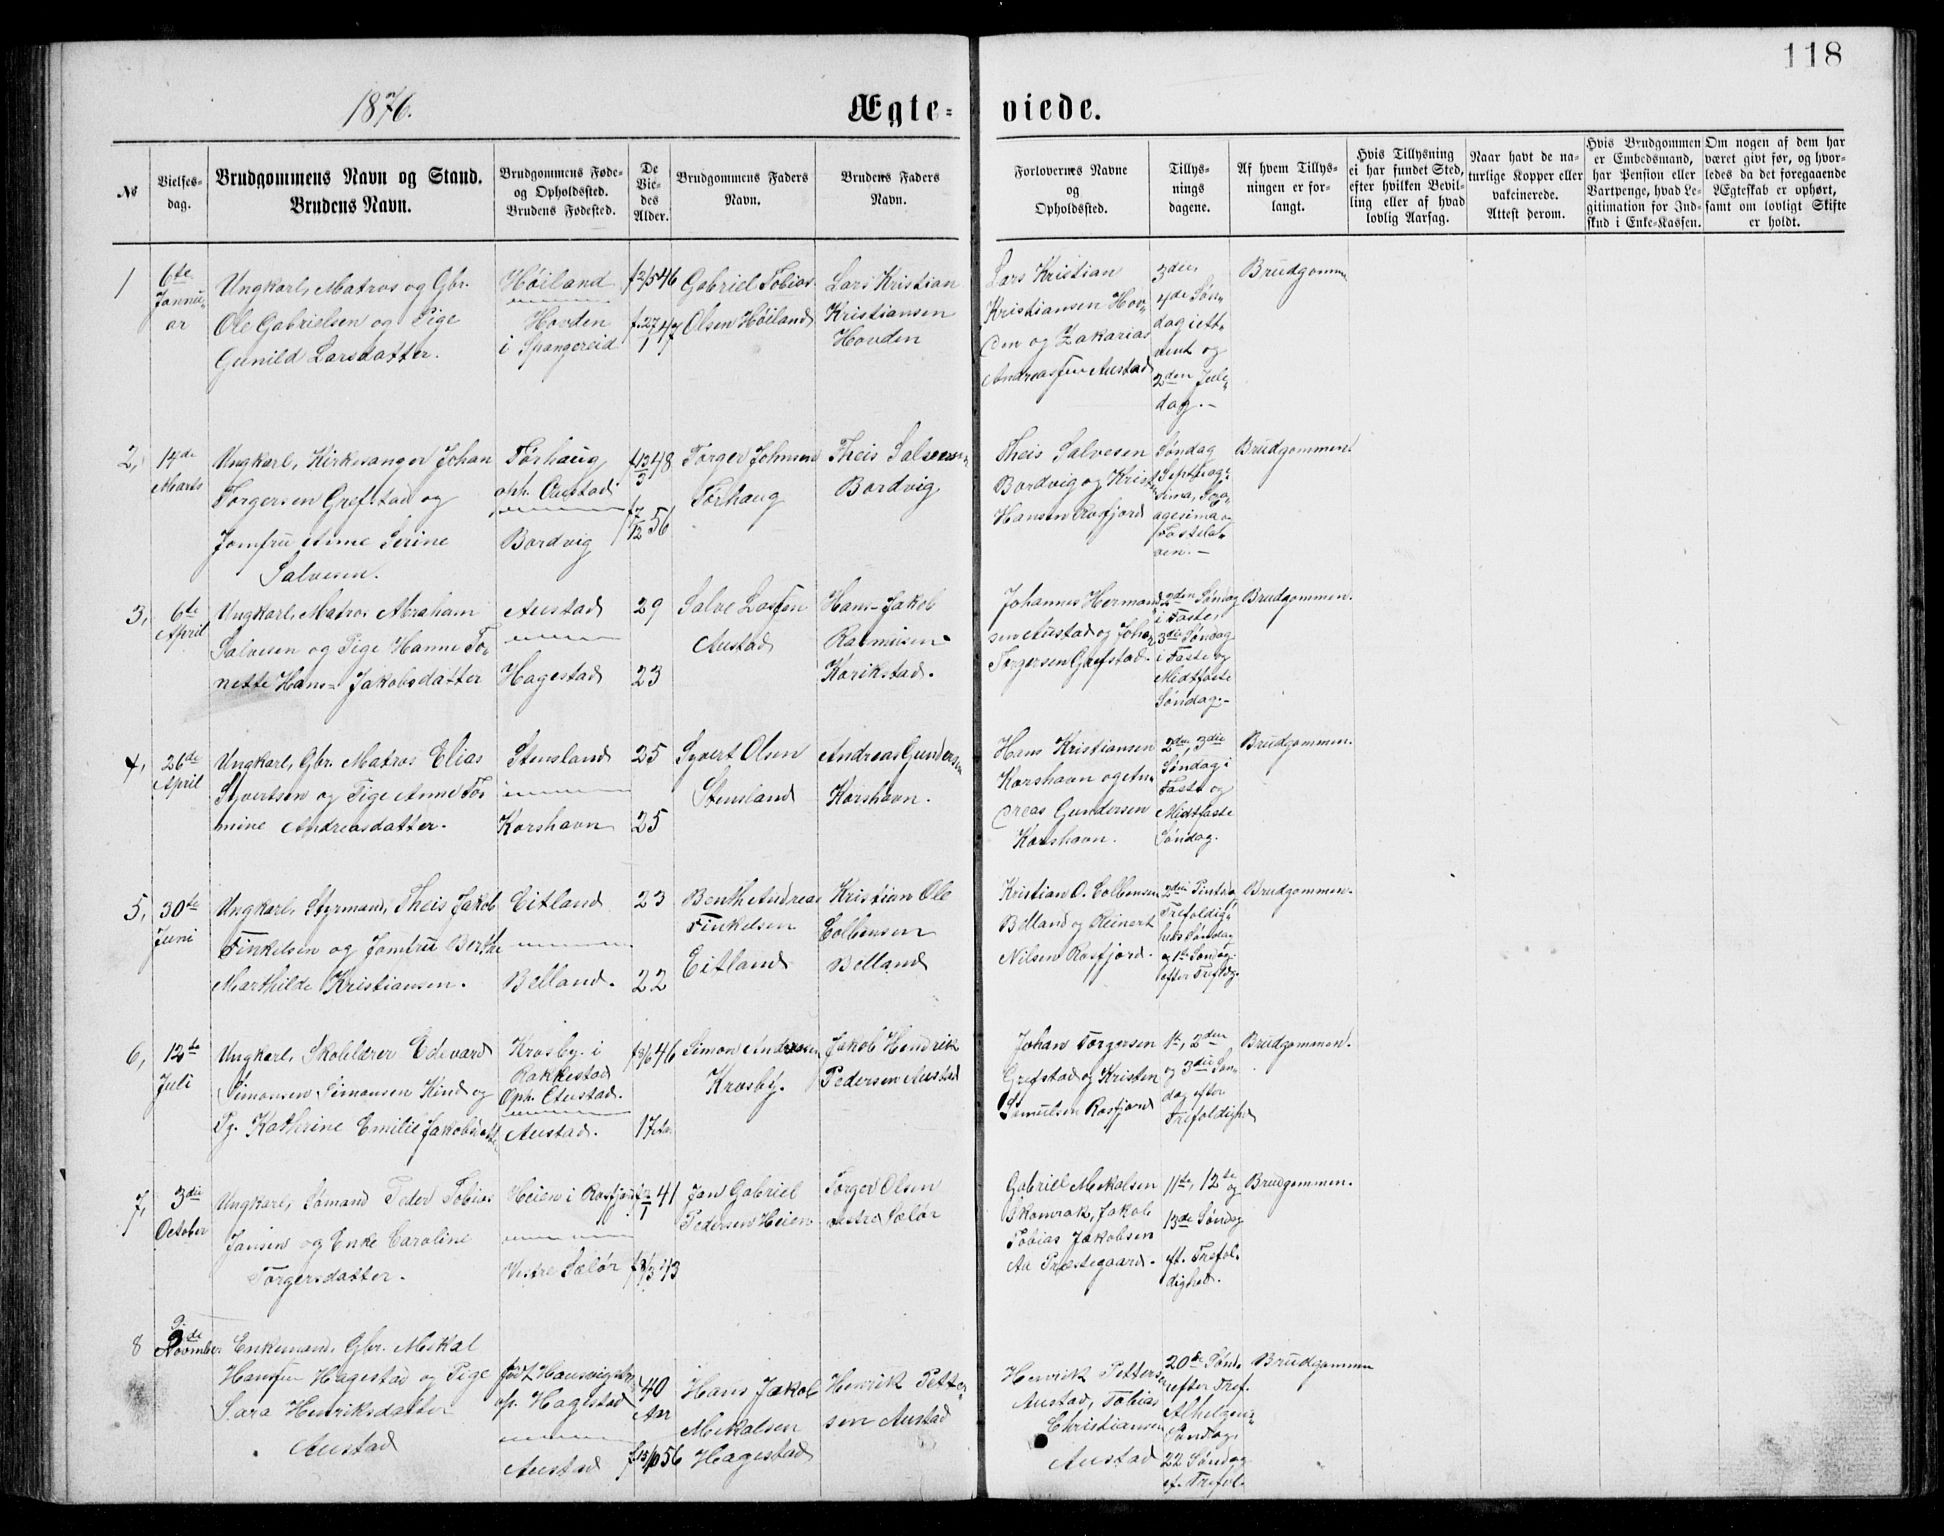 118
1876.
Ægte-
viede.
No
Vielses-
dag.
Brudgommens Navn og Stand.
Brudens Navn.
Brudgommens Føde-
og Opholdssted.
Brudens Fødested.
De
Vie-
des
Alder.
Brudgommens Faders
Navn.
Brudens Faders
Navn.
Forlovernes Navne
og
Opholdssted.
Tillys-
nings
dagene.
Af hvem Tillys-
ningen er for-
langt.
Hvis Tillysning
ei har fundet Sted,
efter hvilken Bevil-
ling eller af hvad
lovlig Aarsag.
Naar havt de na-
turlige Kopper eller
vakcinerede.
Attest derom.
Hvis Brudgommen
er Embedsmand,
har Pension eller
Vartpenge, hvad Le-
gitimation for Ind-
skud i Enke-Kassen.
Om nogen af dem har
været givt før, og hvor-
ledes da det foregaaende
Ægteskab er ophørt,
samt om lovligt Skifte
er holdt.
1
6te
Januu-
ar
Ungkarl, Matros og Gbr.
Ole Gabrielsen og Pige
Gunild Larsdatter.
Høiland
Hovden
i Spangereid
f 2/5 46
f. 27/1 47
Gabriel Tobias
Olsen Høiland
Lars Kristian
Kristiansen
Hovden
Lars Kristian
Kristiansen Hov-
den og Zakarias
Andreassen Austad
3die,
4de Søn-
dag i ett-
vent og
2den Jule-
dag.-
Brudgomme
2,
14de
Marts
Ungkarl, Kirkesanger Johan
Torgersen Grefstad og
Jomfru Anne Serine
Salvesen.
Tørhaug
oph. Austad
Bordvig
f 13/3 48
f 7/12 56
Torger Johnsen
Tørhaug
Theis Salvesen
Bordvig
Theis Salvesen
Bordvig og Krist.
Hansen Rosfjord
Søndag
Septuag-
sima, Sexa-
agesima og
Fastela-
ven.-
Brudgommen.
3,
6te
April
Ungkarl, Matros Abraham
Salvesen og Pige Hanne Tor-
nette Hans-Jakobsdatter
Austad
Hagestad
29
23
Salve Lassen
Austad
Hans-Jakob
Rasmusen-
Korikstad.
Johannes Hermand-
sen Austad og Johan
Torgersen Grefstad.
2den Søndag
i Faste,
3die Søndag
i Faste og
Midtfaste
Søndag.-
Brudgommen.
4,
26de
April
Ungkarl, Gbr. Matros Elias
Syvertsen og Pige Anne Tor-
mine Andreasdatter.
Stensland
Korshavn
25
25
Syvert Olsen
Stensland
Andreas Gundersen
Korshavn.
Hans Kristiansen
Korshavn og An-
dreas Gundersen
Korshavn.
2den, 3die
Søndag i
Faste og
Midtfaste
Søndag.
Brudgommen.
5,
30te
Juni
Ungkarl, Styrmand, Theis Jakob
Finkelsen og Jomfru Berthe
Marthilde Kristiansen.
Eitland
Belland.
23
22
Benth Andreas
Finkelsen
Eitland
Kristian Ole
Colbensen
Belland
Kristian O. Colbensen
Belland og Reinert
Nilsen Rosfjord.
2den Pintsda
Trefoldig-
heds Søndag
og 1ste Søndag
efter Trefldg.
Brudgommen.
6,
12te
Juli
Ungkarl, Skolelærer Edevard
Simonsen Simonsen Kind og
Pg. Katherine Emilie Jakobsdatte
Krosby i
Rakkestad
Oph. Austad.
Austad.
f 3/6 46
17
Simon Andersen
Krosby.
Jakob Hendrik
Pedersen Austad
Johan Torgersen
Grefstad og Kristen
Samuelsen Rosfjord
1ste, 2den
og 3die Søn-
dag efter
Trefoldighed
Brudgommen.
7,
3die
October
Ungkarl, Sømand Peder Tobias
Jansen og Enke Caroline
Torgersdatter.
Heien i Rosfjord
Vestre Sælør
41
f 3/3 43
Jan Gabriel
Pedersen Heien
Torger Olsen
vestre Sælør
Gabriel Mekalsen
Skomrak, Jakob
Tobias Jakobsen
Au Præstegaard.
11te, 12te og
13de Søndag
eft. Trefol-
dighed.
Brudgommen.
8
9de
November
Enkemand, Gbr. Mekal
Hansen Hagestad og Pige
Sara Henriksdatter
Austad
op. Hagestad
Austad
40
Aar
f. 15/10 56
Hans Jakob
Mekalsen
Hagestad
Henrik Petter-
sen Austad
Henrik Pettersen
Austad, Tobias
Christiansen
Austad
20de Sønd.
efter Tref.
Alhelgen-
Søndag,
22 Søndag
ef. Trefol.
Brudgommen